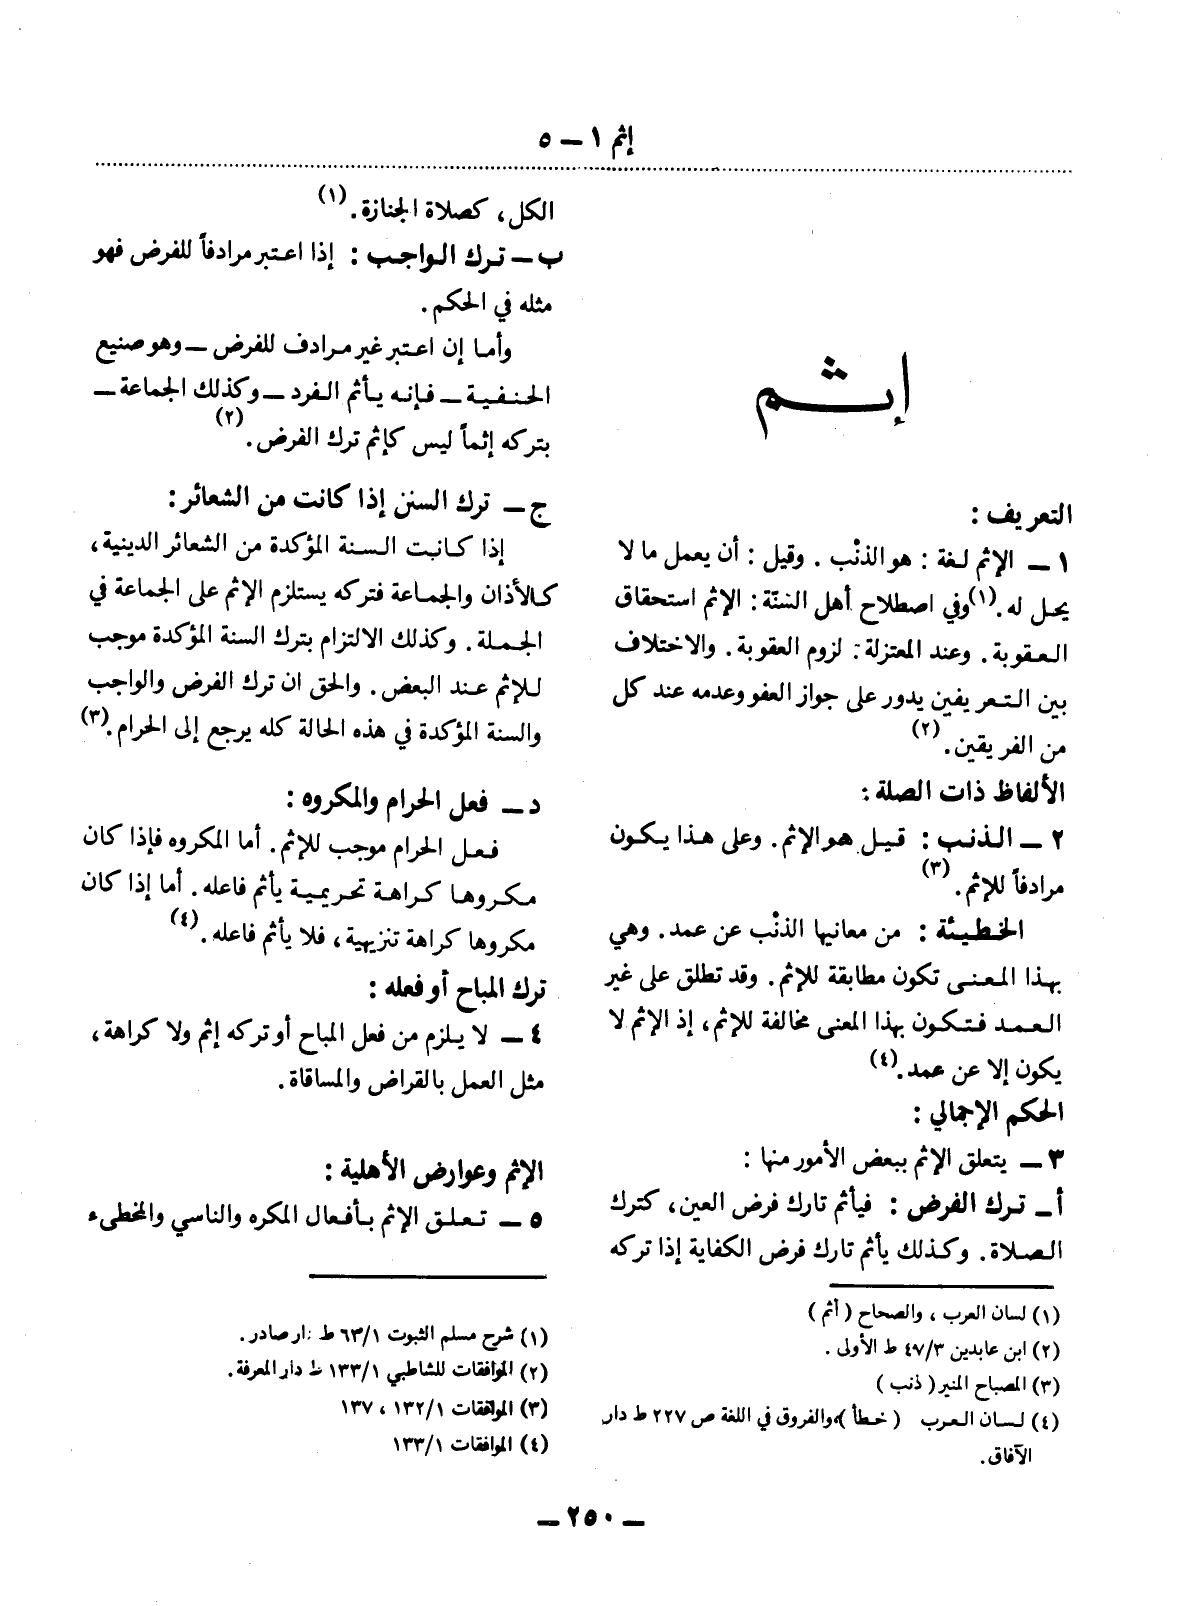 إثم ١ ــ ٥
إثـم
التعريف :
١ ــ الإثم لغة : هو الذنْب . وقيل : أن يعمل ما لا
يحل له.(١) وفي اصطلاح أهل السنّة : الإثم استحقاق
العقوبة . وعند المعتزلة : لزوم العقوبة . والاختلاف
بين التعريفين يدور على جواز العفو وعدمه عند كل
من الفريقين.(٢)
الألفاظ ذات الصلة :
٢ ــ الذنب : قيل هو الإثم . وعلى هذا يكون
مرادفاً للإثم.(٣)
الخطيئة : من معانيها الذنْب عن عمد . وهي
بهذا المعنى تكون مطابقة للإثم . وقد تطلق على غير
العمد فتكون بهذا المعنى مخالفة للإثم ، إذ الإثم لا
يكون إلا عن عمد.(٤)
الحكم الإجمالي :
٣ ــ يتعلق الإثم ببعض الأمور منها :
أ ــ ترك الفرض : فيأثم تارك فرض العين ، كترك
الصلاة . وكذلك يأثم تارك فرض الكفاية إذا تركه
(١) لسان العرب ، والصحاح ( أثم )
(٢) ابن عابدين ٤٧/٣ ط الأولى .
(٣) المصباح المنير ( ذنب )
(٤) لسان العرب ( خطأ )، والفروق في اللغة ص ٢٢٧ ط دار
الآفاق .
الكل ، كصلاة الجنازة.(١)
ب ــ ترك الواجب : إذا اعتبر مرادفاً للفرض فهو
مثله في الحكم .
وأما إن اعتبر غير مرادف للفرض ــ وهو صنيع
الحنفية ــ فإنه يأثم الفرد ــ وكذلك الجماعة ــ
بتركه إثماً ليس كإثم ترك الفرض.(٢)
ج ــ ترك السنن إذا كانت من الشعائر :
إذا كانت السنة المؤكدة من الشعائر الدينية ،
كالأذان والجماعة فتركه يستلزم الإثم على الجماعة في
الجملة . وكذلك الالتزام بترك السنة المؤكدة موجب
للإثم عند البعض . والحق ان ترك الفرض والواجب
والسنة المؤكدة في هذه الحالة كله يرجع إلى الحرام.(٣)
د ــ فعل الحرام والمكروه :
فعل الحرام موجب للإثم . أما المكروه فإذا كان
مكروها كراهة تحريمية يأثم فاعله . أما إذا كان
مكروها كراهة تنزيهية ، فلا يأثم فاعله.(٤)
ترك المباح أو فعله :
٤ ــ لا يلزم من فعل المباح أو تركه إثم ولا كراهة ،
مثل العمل بالقراض والمساقاة .
الإثم وعوارض الأهلية :
٥ ــ تعلق الإثم بأفعال المكره والناسي والمخطىء
(١) شرح مسلم الثبوت ٦٣/١ ط دار صادر .
(٢) الموافقات للشاطبي ١٣٣/١ ط دار المعرفة .
(٣) الموافقات ١٣٢/١ ، ١٣٧
(٤) الموافقات ١٣٣/١
ــ ٢٥٠ ــ